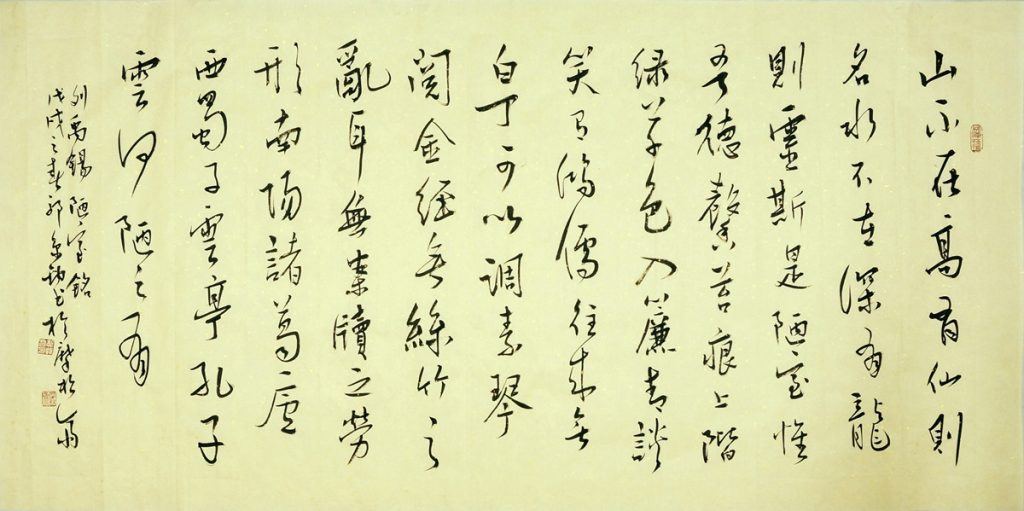 山不在高有仙則
名水不在深有龍
則靈斯是陋室惟
吾德馨苔痕上階
绿草色入簾青談
笑有鴻儒往来無
白丁可以调素琴
閲金经無絲竹之
亂耳無案牘之劳
形南陽諸葛廬
西蜀子雲亭孔子
雲何陋之有
刘禹錫陋室銘
戊戌之春郭书於